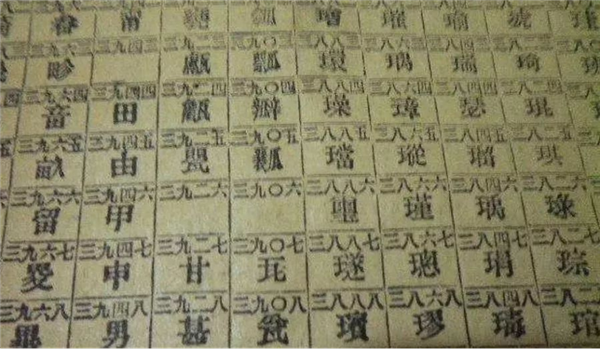 畚 瑜 琥
三九六三 三九四三 三九二三 三九〇三 三八八三 三八六三 三八四三 三八二三
畛 瓢 環 瑪 瑞 琦
三九六四 三九四四 三九二四 三九〇四 三八八四 三八六四 三八四四 三八二四
畜 田 瓣 璪 璋 瑟 琨
三九六五 三九四五 三九二五 三九〇五 三八八五 三八六五 三八四五 三八二五
畝 由 瓤 璫 瑽 瑙 琪
三九六六 三九四六 三九二六 三九〇六 三八八六 三八六六 三八四六 三八二六
留 甲 瑾 瑀
三九六七 三九四七 三九二七 三九〇七 三八八七 三八六七 三八四七 三八二七
畟 申 甘 瓦 璲 璁 瑁 琮
三九六八 三九四八 三九二八 三九〇八 三八八八 三八六八 三八四八 三八二八
男 甚 瓮 璸 璆 琯